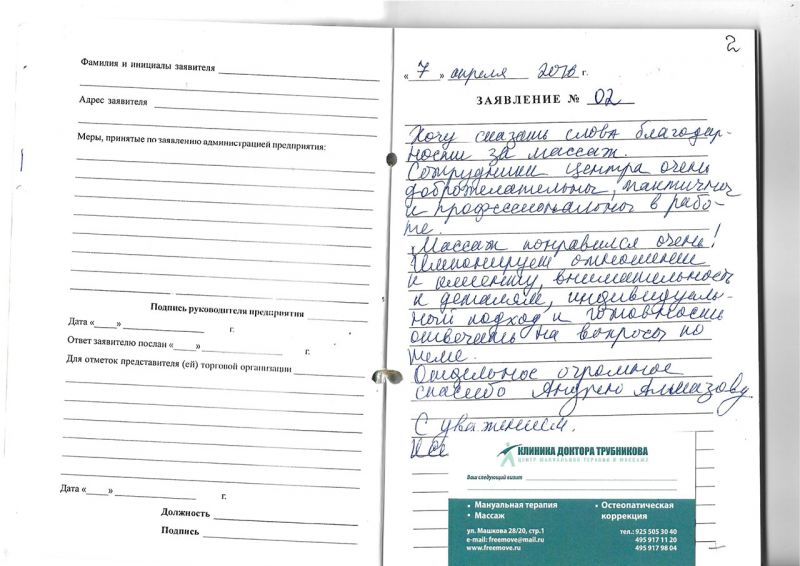 Фамилия и инициалы заявителя
Адрес заявителя
Меры, принятые по заявлению администрацией предприятия:
Подпись руководителя предприятия
Дата «    »    г.
Ответ заявителю послан «    »    г.
Для отметок представителя (ей) торговой организации
Дата «    »    г.
Должность
Подпись
2
« 7 » апреля 2016 г.
ЗАЯВЛЕНИЕ № 02
Хочу сказать слова благодар-
ности за массаж.
Сотрудники центра очень
доброжелательны, тактичны
и профессиональны в рабо-
те.
Массаж понравился очень!
Импонирует отношение
к клиенту, внимательность
к деталям, индивидуаль-
ный подход и готовность
отвечать на вопросы по
теме.
Отдельное огромное
спасибо Андрею Алмазову.
С уважением,
КЛИНИКА ДОКТОРА ТРУБНИКОВА
ЦЕНТР МАНУАЛЬНОЙ ТЕРАПИИ И МАССАЖА
Ваш следующий визит
• Мануальная терапия
• Массаж
• Остеопатическая
коррекция
ул. Машкова 28/20, стр.1
e-mail: freemove@mail.ru
www.freemove.ru
тел.: 925 505 30 40
495 917 11 20
495 917 98 04